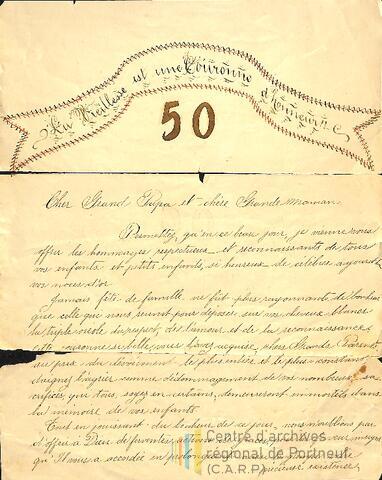 La Vieillesse est une Couronne d'Honneur
50
Cher Grand Papa et chère Grande maman.
Permettez qu'en ce beau jour, je vienne vous
offrir les hommages respectueux et reconnaissants de tous
vos enfants et petits enfants, si heureux de célébrer aujourd'
vos noces d'or
Jamais fête de famille ne fut plus rayonnante de bonheur
que celle qui nous réunit pour déposer sur vos cheveux blancs
la triple du respect, de l'amour et de la reconnaissance
cette couronne si belle, vous l'avez acquise, chers Grands Parents
au prix du dévouement le plus entier et le plus constant
daignez l'agréer comme dédommagement de vos nombreux sa-
crifices, qui tous, soyez en certains, demeureront immortels dans
la mémoire de vos enfants.
Tout en jouissant du bonheur de ce jour, nous n'oublions pas
d'offrir à Dieu de ferventes actions
qu'Il vous a accordée en prolongeant
précieuse existence,
Centre d'archives
régional de Portneuf
(C.A.R.P.)